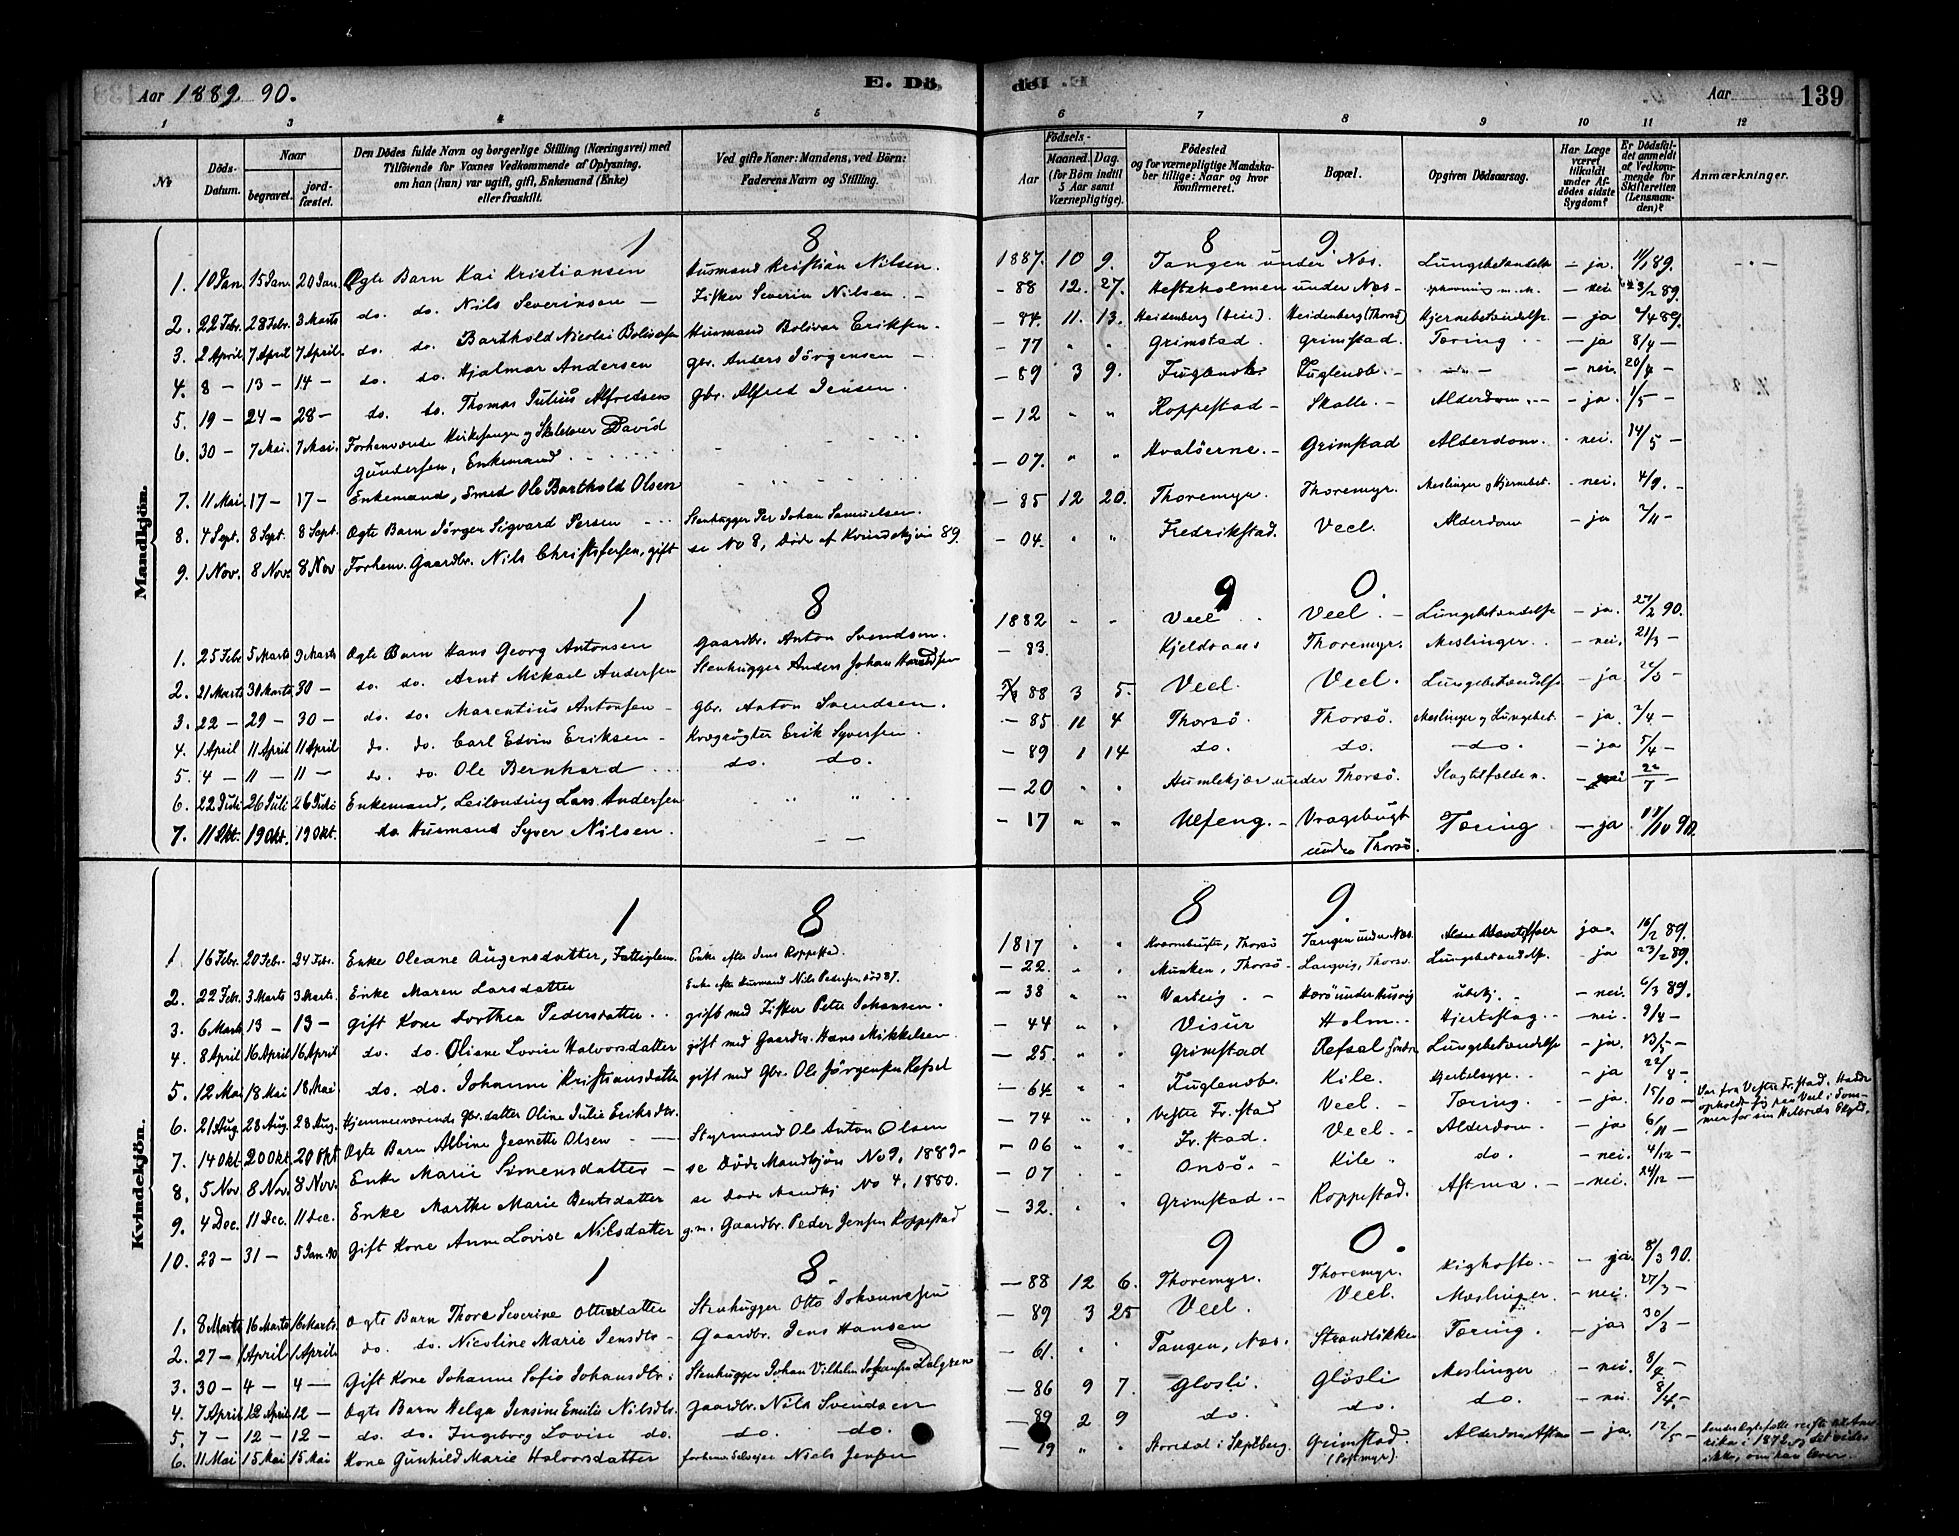 Aar 1889 90.
E. Dö-
del
Aar
139
1 3 4 5 6 7 8 9 10 11 12
No
Döds-Datum.
Naar
begravet.
jord-fæstet.
Den Dödes fulde Navn og borgerlige Stilling (Næringsvei) med
Tilföiende for Voxnes Vedkommende af Oplysning,
om han (hun) var ugift, gift, Enkemand (Enke)
eller fraskilt.
Ved gifte Koner: Mandens, ved Börn:
Faderens Navn og Stilling.
Födsels-
Aar
Maaned. Dag.
(for Börn indtil 5 Aar samt Værnepligtige).
Födested
og for værnepligtige Mandska-
ber tillige: Naar og hvor
konfirmeret.
Bopæl.
Opgiven Dödsaarsag.
Har Læge været tilkaldt under Af-dödes sidste Sygdom?
Er Dödsfal-det anmeldt af Vedkom-mende for Skifteretten (Lensman-den)?
Anmærkninger.
Mandkjön.
1 8 8 9.
1. 10 Jan. 15 Jan. 20 Jan. Ægte Barn Kai Kristiansen Husmand Kristian Nilsen. 1887. 10 9. Tangen under Næs. Lungebetændelse - ja. 11/1 89.
2. 22 Febr. 28 Febr. 3 Marts do. do. Nils Severinsen - Fisker Severin Nilsen. - 88 12. 27. Hestholmen under Næs - - nei 23/2 89.
3. 2 April 7 April 7 April. do. do. Barthold Nicolai Bolivarsen Husmand Bolivar Eriksen. - 84. 11. 13. Heidenberg (Heie). Heidenberg (Thorsö) Hjernebetændelse - ja 4/4 89.
4. 8 - 13 - 14 - do. do. Hjalmar Andersen Gbr. Anders Jörgensen - - 77 " " Grimstad. Grimstad. Tæring - ja 8/4 -
5. 19 - 24 - 28 - do. do. Thomas Julius Alfredsen Gbr. Alfred Jensen. - 89 3 9. Fuglevik Fuglevik. - - nei. 20/4 -
6. 30 - 7 Mai. 7 Mai. Forhenværende Kirkesanger og Skolelærer David - 12 " " Roppestad - Skalle. - Alderdom. - - ja. 1/5 -
Gundersen, Enkemand
7. 11 Mai 17 - 17 - Enkemand, Smed Ole Barthold Olsen - 07. " " Hvalöerne. - Grimstad Alderdom. - nei. 14/5 -
8. 4 Sept. 8 Sept. 8 Sept. Ægte Barn Jörgen Sigvard Persen Stenhugger Per Johan Samuelsen. - 85 12 20. Thoremyr. Thoremyr. Meslinger og Hjernebet. - nei. 4/9. -
9. 1 Nov. 8 Nov. 8 Nov Forhenv. Gaardbr. Nils Christofersen, gift se No 8, Döde af Kvindekjön 89. - 04. " " Fredrikstad. Veel. Alderdom - ja 7/11 -
1 8 9 0.
1. 25 Febr. 5 Marts 9 Marts Ægte Barn Hans Georg Antonsen Gaardbr. Anton Svendsen. 1882 - - Veel Veel. - Lungebetændelse - ja. 27/2 90.
2. 21 Marts 30 Marts 30 - do. do. Arnt Mikael Andersen Stenhugger Anders Johan - 83. Kjeldvans Thoremyr. Meslinger. - nei. 21/3 -
3. 22 - 29 - 30 - do. do. Marentius Antonsen - Gbr. Anton Svendsen. 88 3 5. Veel. Veel. Lungebetændelse - ja. 24/3 -
4. 1 April 11 April 11 April do. do. Carl Edvin Eriksen - Kvægrögter Erik Syversen. - 85 11 4 Thorsö. Thorsö. Meslinger og Lungebet. - ja 2/4 -
5. 4 - 11 - 11 - do. do. Ole Bernhard do. do. - 89 1 14 do. do. - do. - ja 5/4 -
6. 22 Juli 26 Juli 26 Juli Enkemand, Leilænding Lars Andersen - 20 " " Humlekjær under Thorsö. Slagtilfælde. - nei 22/7 -
7. 11 Okt. 19 Okt. 19 Okt. do. Husmand Syver Nilsen. - - - 17 " " Ulfeng. - Vragebugt Tæring - ja 17/10 90.
under Thorsö.
Kvindekjön.
1 8 8 9.
1 16 Febr. 20 Febr. 24 Febr. Enke Oleane Augensdatter, Fattiglem Enke efter Jens Roppestad. 1817 " " Thorsö Tangen under Næs. ja. 16/2 89.
2. 22 Febr. 3 Marts 3 Marts. Enke Maren Larsdatter Enke efter Husmand Nils Pedersen död 87. - 22. " " Munken, Thorsö - Langvig, Thorsö. Lungebetændelse. - ja 23/2 89.
3. 6 Marts 13 - 13 - Gift Kone Dorthea Pedersdatter gift med Fisker Peter Johansen. - 38 " " Varteig. - ubekj. - nei. 6/3 89.
4. 8 April 16 April 16 April do. do. Oliane Lovise Halvorsdatter gift med Gaardbr. Hans Mikkelsen. - 44 " " Visur Holm. - Hjerteslag. - nei. 9/4 -
5. 12 Mai 18 Mai 18 Mai do. do. Johanne Kristiansdatter gift med Gbr. Ole Jörgensen Refsal - 25. " " Grimstad Refsal Söndre Lungebetændelse - ja. 13/5 -
6. 21 Aug. 28 Aug. 28 Aug. Hjemmeværende Gbr.datter Oline Julie Eriksdtr. - 64 " " Fuglevik. Kile. Hjertesyge. - ja 22/8 -
7. 14 Okt. 20 Okt. 20 Okt Ægte Barn Albine Jeanette Olsen - Styrmand Ole Anton Olsen - 74 " " Vestre Fr.stad Veel. - Tæring. - ja. 15/10 - Var fra Vestre Fr.stad. Havde
opholdt sig paa Veel i Som-
mer for sin Helbreds Skyld.
8. 5 Nov 8 Nov. 8 Nov. Enke Marie Simensdatter - se Döde Mandkjön No 9, 1889 - - 06 " " Fr.stad. Veel. - Alderdom. - ja 6/11 -
9. 4 Dec. 11 Dec. 11 Dec. Enke Marthe Marie Bentsdatter se Döde Mandkj No 4, 1850. - 07 " " Onsö. - Kile. do. - nei. 4/12 -
10. 23 - 31 - 5 Jan. 90 Gift Kone Anne Lovise Nilsdatter g.m. Gaardbr. Peder Jensen Roppestad - 32. " " Grimstad. - Roppestad. Astma. - - nei. 24/12 -
1 8 9 0.
1. 8 Marts 16 Marts 16 Marts. Ægte Barn Thora Severine Ottersdatter Stenhugger Otto Johannesen - 88 12 6. Thoremyr. Thoremyr. Kighoste. - - ja. 8/3 90.
2. 27 - 1 April 1 April. do. do. Nicoline Marie Jensdtr. - Gaardbr. Jens Hansen - 89 3 25 Veel. Veel. Meslinger. - nei. 27/3 -
3. 30 - 4 - 4 - Gift Kone Johanne Sofie Johansdtr. Stenhugger Johan Vilhelm Johansen Dalgren - 61. " " Tangen, Næs. Strandlökken Tæring. - ja. 30/3 -
4. 7 April 12 April 12 - Ægte Barn Helga Jensine Emilie Nilsdtr. Gaardbr. Nils Svendsen - 86 9 7. Glosli. Glosli Meslinger - nei. 8/4 -
5. 7 - 12 - 12 - do. do. Ingeborg Lovise do. do. do. - 89 2 9 do. do. do. - nei. 8/4 -
6. 11 Mai 15 Mai 15 Mai Kone Gunhild Marie Halvorsdatter forhenv. Selveier Niels Jensen - 19 " " Storedal i Skjeberg. Grimstad. Alderdom Astma - ja. 12/5 -
(Postmyr).
reiste til Ame-
rika i 1872, og det vides
ikke, om han lever.